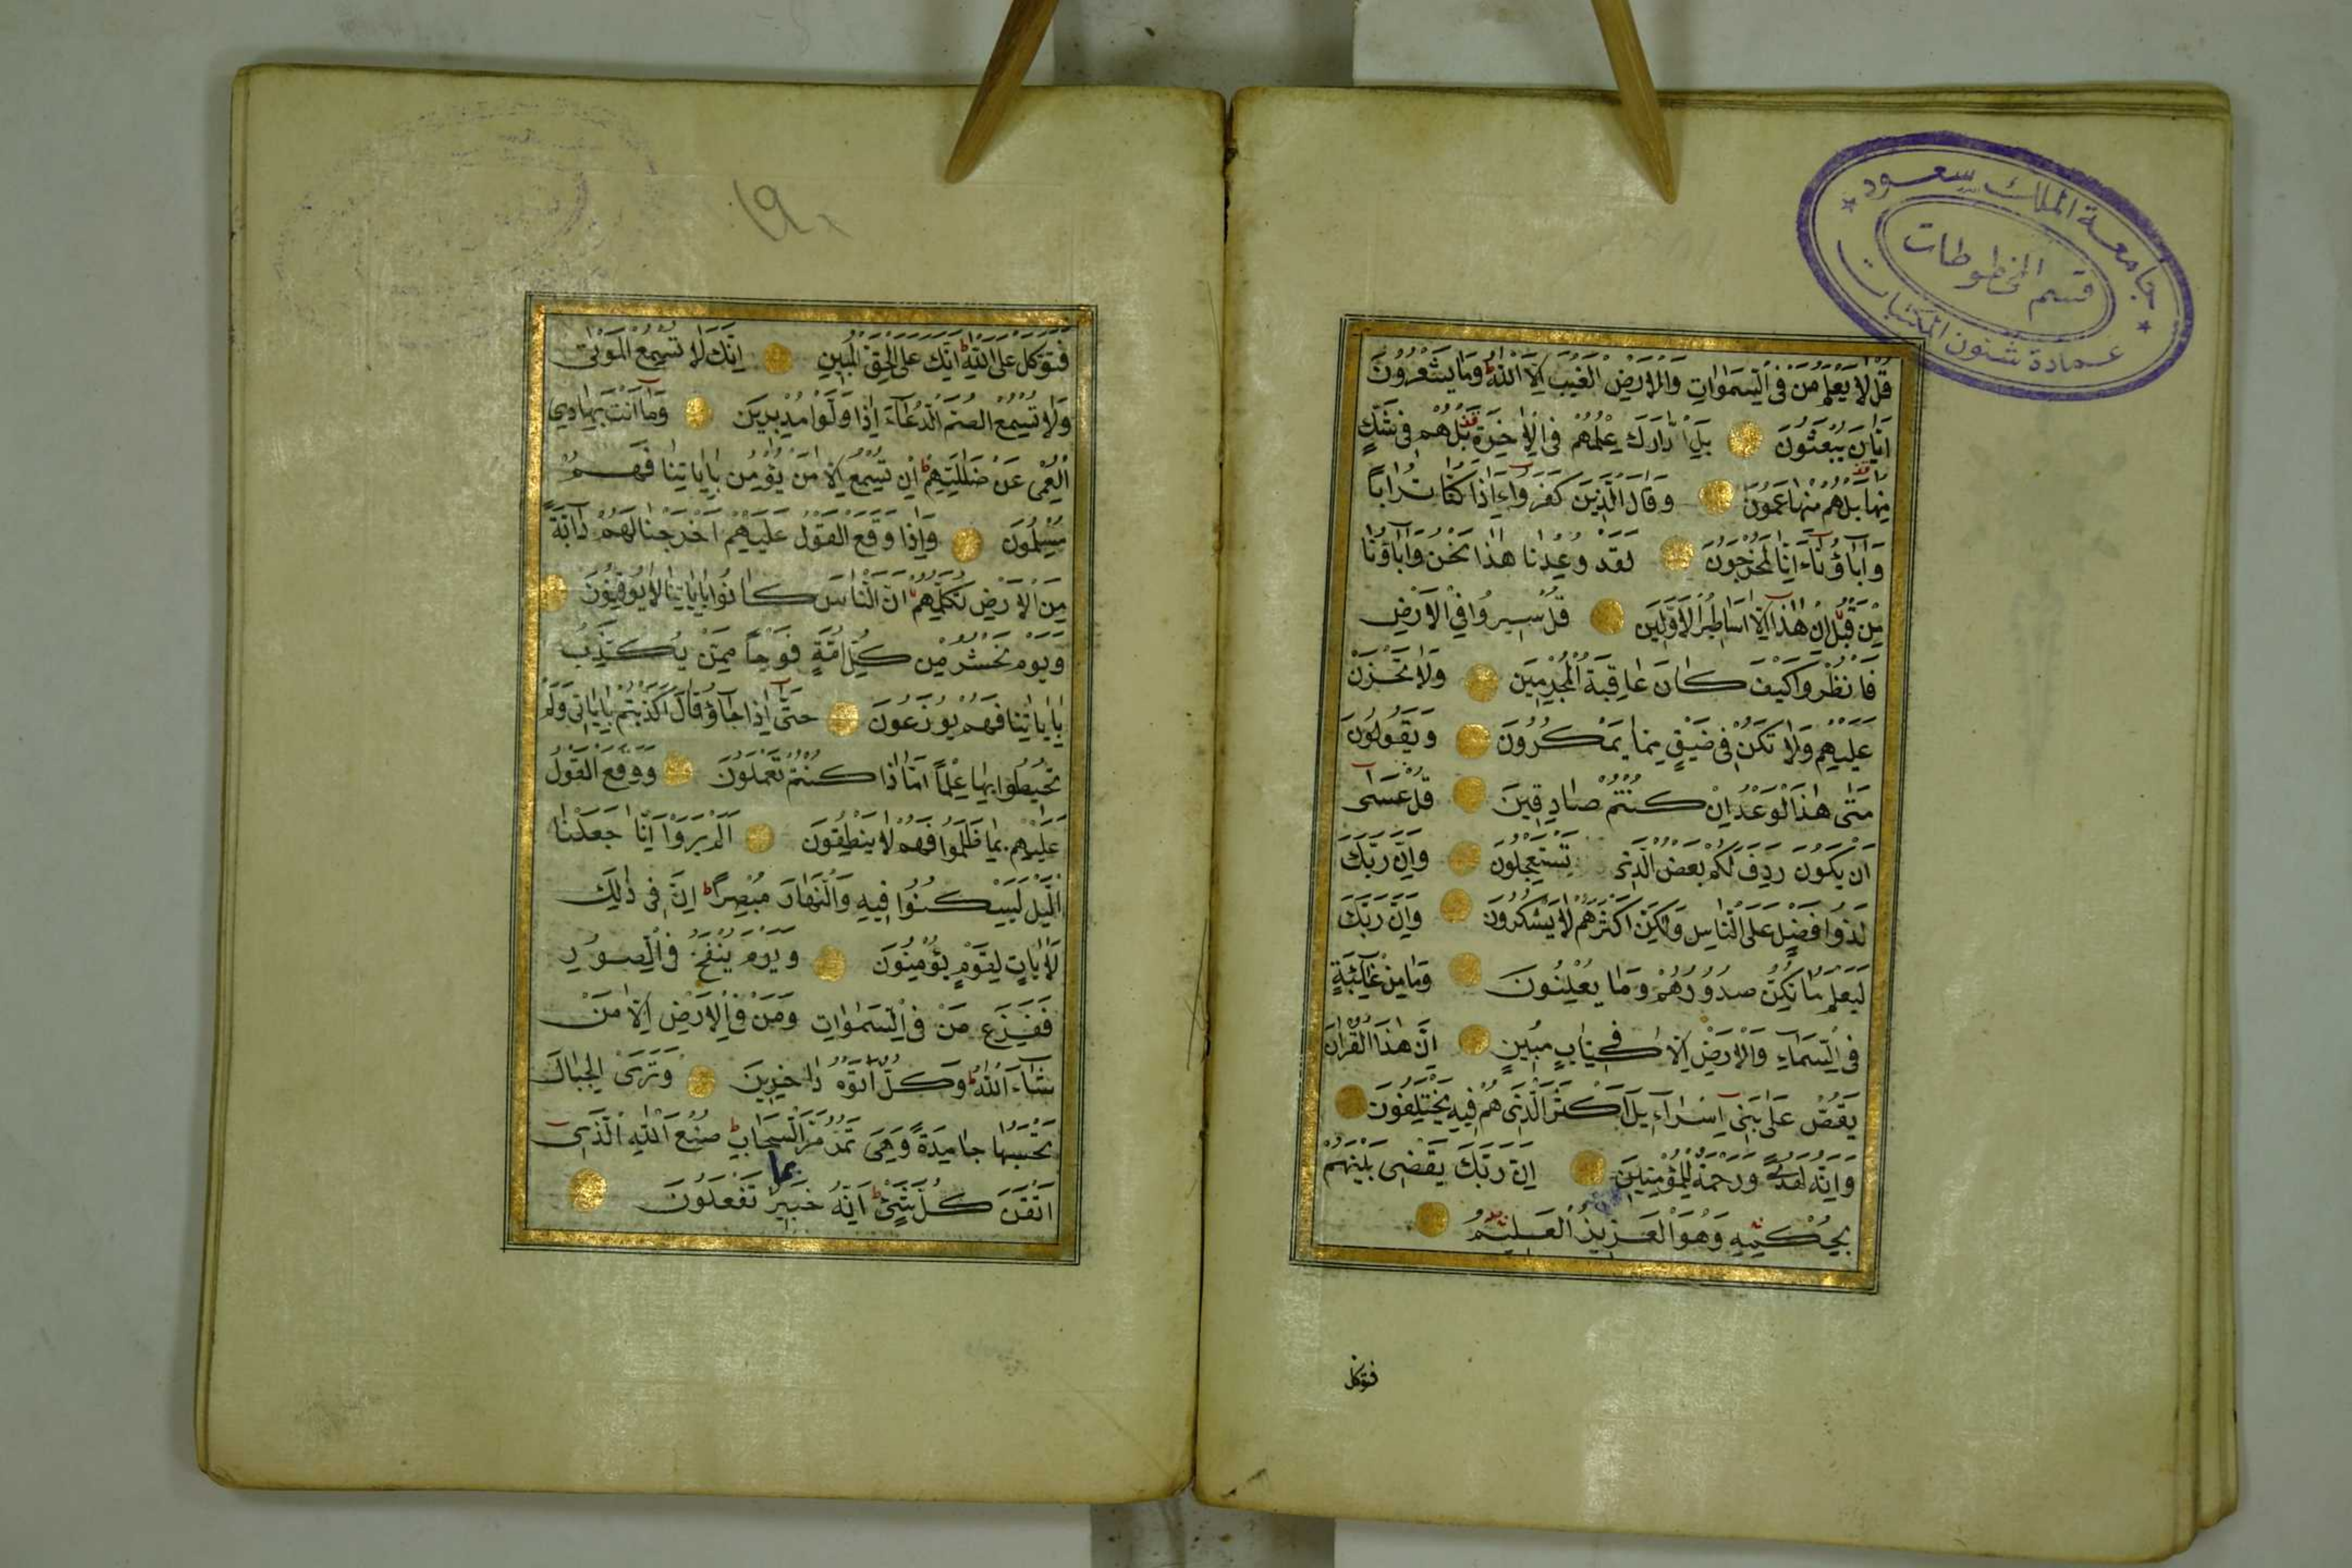 جامعة الملك سعود
قسم المخطوطات
عمادة شئون المكتبات
قُلْ لَا يَعْلَمُ مَنْ فِي السَّمٰوَاتِ وَالْاَرْضِ الْغَيْبَ اِلَّا اللّٰهُ وَمَا يَشْعُرُونَ
اَيَّانَ يُبْعَثُونَ بَلِ ادَّارَكَ عِلْمُهُمْ فِي الْاٰخِرَةِ بَلْ هُمْ فِي شَكٍّ
مِنْهَا بَلْ هُمْ مِنْهَا عَمُونَ وَقَالَ الَّذِينَ كَفَرُوا ءَاِذَا كُنَّا تُرَابًا
وَاٰبَاؤُنَا اَئِنَّا لَمُخْرَجُونَ لَقَدْ وُعِدْنَا هٰذَا نَحْنُ وَاٰبَاؤُنَا
مِنْ قَبْلُ اِنْ هٰذَا اِلَّا اَسَاطِيرُ الْاَوَّلِينَ قُلْ سِيرُوا فِي الْاَرْضِ
فَانْظُرُوا كَيْفَ كَانَ عَاقِبَةُ الْمُجْرِمِينَ وَلَا تَحْزَنْ
عَلَيْهِمْ وَلَا تَكُنْ فِي ضَيْقٍ مِمَّا يَمْكُرُونَ وَيَقُولُونَ
مَتٰى هٰذَا الْوَعْدُ اِنْ كُنْتُمْ صَادِقِينَ قُلْ عَسٰى
اَنْ يَكُونَ رَدِفَ لَكُمْ بَعْضُ الَّذِي تَسْتَعْجِلُونَ وَاِنَّ رَبَّكَ
لَذُوا فَضْلٍ عَلَى النَّاسِ وَلٰكِنَّ اَكْثَرَهُمْ لَا يَشْكُرُونَ وَاِنَّ رَبَّكَ
لَيَعْلَمُ مَا تُكِنُّ صُدُورُهُمْ وَمَا يُعْلِنُونَ وَمَا مِنْ غَائِبَةٍ
فِي السَّمَاءِ وَالْاَرْضِ اِلَّا فِي كِتَابٍ مُبِينٍ اِنَّ هٰذَا الْقُرْاٰنَ
يَقُصُّ عَلٰى بَنِي اِسْرَاءِيلَ اَكْثَرَ الَّذِي هُمْ فِيهِ يَخْتَلِفُونَ
وَاِنَّهُ لَهُدًى وَرَحْمَةٌ لِلْمُؤْمِنِينَ اِنَّ رَبَّكَ يَقْضِي بَيْنَهُمْ
بِحُكْمِهِ وَهُوَ الْعَزِيزُ الْعَلِيمُ
فتوكل
١٩٠
فَتَوَكَّلْ عَلَى اللّٰهِ اِنَّكَ عَلَى الْحَقِّ الْمُبِينِ اِنَّكَ لَا تُسْمِعُ الْمَوْتٰى
وَلَا تُسْمِعُ الصُّمَّ الدُّعَاءَ اِذَا وَلَّوْا مُدْبِرِينَ وَمَا اَنْتَ بِهَادِي
الْعُمْيِ عَنْ ضَلٰلَتِهِمْ اِنْ تُسْمِعُ اِلَّا مَنْ يُؤْمِنُ بِاٰيَاتِنَا فَهُمْ
مُسْلِمُونَ وَاِذَا وَقَعَ الْقَوْلُ عَلَيْهِمْ اَخْرَجْنَا لَهُمْ دَابَّةً
مِنَ الْاَرْضِ تُكَلِّمُهُمْ اَنَّ النَّاسَ كَانُوا بِاٰيَاتِنَا لَا يُوقِنُونَ
وَيَوْمَ نَحْشُرُ مِنْ كُلِّ اُمَّةٍ فَوْجًا مِمَّنْ يُكَذِّبُ
بِاٰيَاتِنَا فَهُمْ يُوزَعُونَ حَتّٰى اِذَا جَاؤُ قَالَ اَكَذَّبْتُمْ بِاٰيَاتِي وَلَمْ
تُحِيطُوا بِهَا عِلْمًا اَمَّاذَا كُنْتُمْ تَعْمَلُونَ وَوَقَعَ الْقَوْلُ
عَلَيْهِمْ بِمَا ظَلَمُوا فَهُمْ لَا يَنْطِقُونَ اَلَمْ يَرَوْا اَنَّا جَعَلْنَا
الَّيْلَ لِيَسْكُنُوا فِيهِ وَالنَّهَارَ مُبْصِرًا اِنَّ فِي ذٰلِكَ
لَاٰيَاتٍ لِقَوْمٍ يُؤْمِنُونَ وَيَوْمَ يُنْفَخُ فِي الصُّورِ
فَفَزِعَ مَنْ فِي السَّمٰوَاتِ وَمَنْ فِي الْاَرْضِ اِلَّا مَنْ
شَاءَ اللّٰهُ وَكُلٌّ اَتَوْهُ دَاخِرِينَ وَتَرَى الْجِبَالَ
تَحْسَبُهَا جَامِدَةً وَهِيَ تَمُرُّ مَرَّ السَّحَابِ صُنْعَ اللّٰهِ الَّذِي
اَتْقَنَ كُلَّ شَيْءٍ اِنَّهُ خَبِيرٌ بما تَفْعَلُونَ